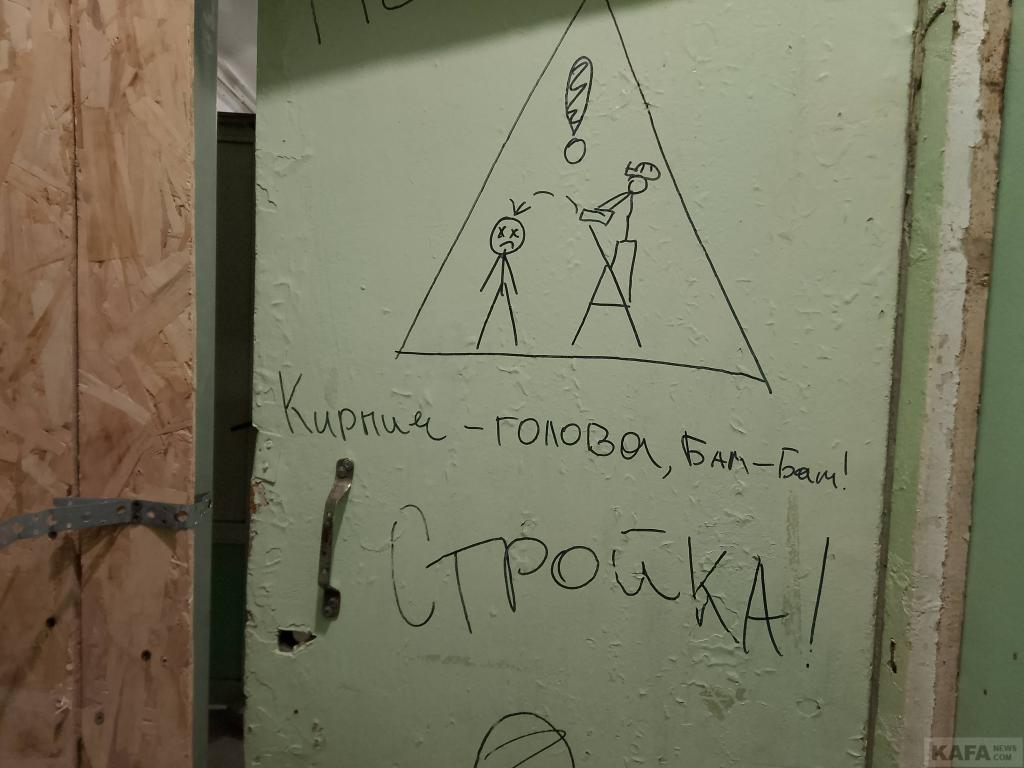 Кирпич - голова, Бам-Бам!
Стройка!
KAFA NEWS
.COM